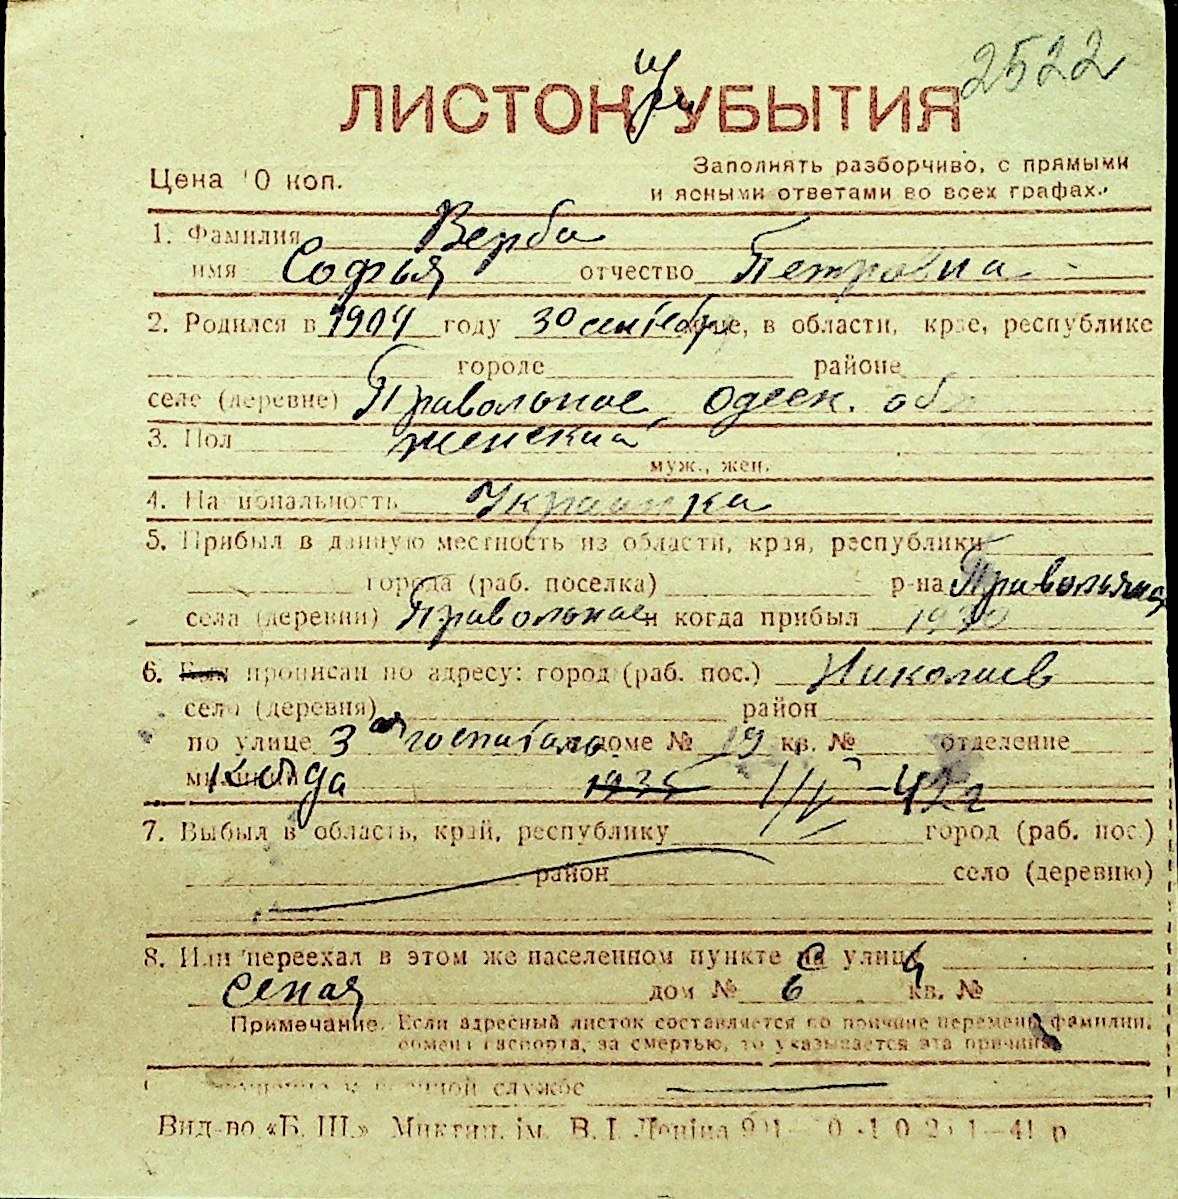 2522
ЛИСТОК УБЫТИЯ
при
Цена 10 коп.
Заполнять разборчиво, с прямыми
и ясными ответами во всех графах.
1. Фамилия Верба
имя Софья отчество Петровна
2. Родился в 1904 году 30 сентебря це, в области, крае, республике
городе районе
селе (деревне) Правольное Одесск. обл
3. Пол женский
муж., жен.
4. Национальность Украинка
5. Прибыл в данную местность из области, края, республики
города (раб. поселка) р-на
села (деревни) Правольное и когда прибыл 1930
6. Был прописан по адресу: город (раб. пос.) Николаев
село (деревня) район
по улице 3ая госпитальн доме № 19 кв. № отделение
милиции Когда 1935 1/IV-42г
7. Выбыл в область, край, республику город (раб. пос.)
район село (деревню)
8. Или переехал в этом же населенном пункте с улицы
Сеная дом № 6 кв. №
Примечание. Если адресный листок составляется по причине перемены фамилии,
обмена паспорта, за смертью, то указывается эта причина.
военной службе
Вид-во «Б. Ш.» Миктип. ім. В. І. Леніна